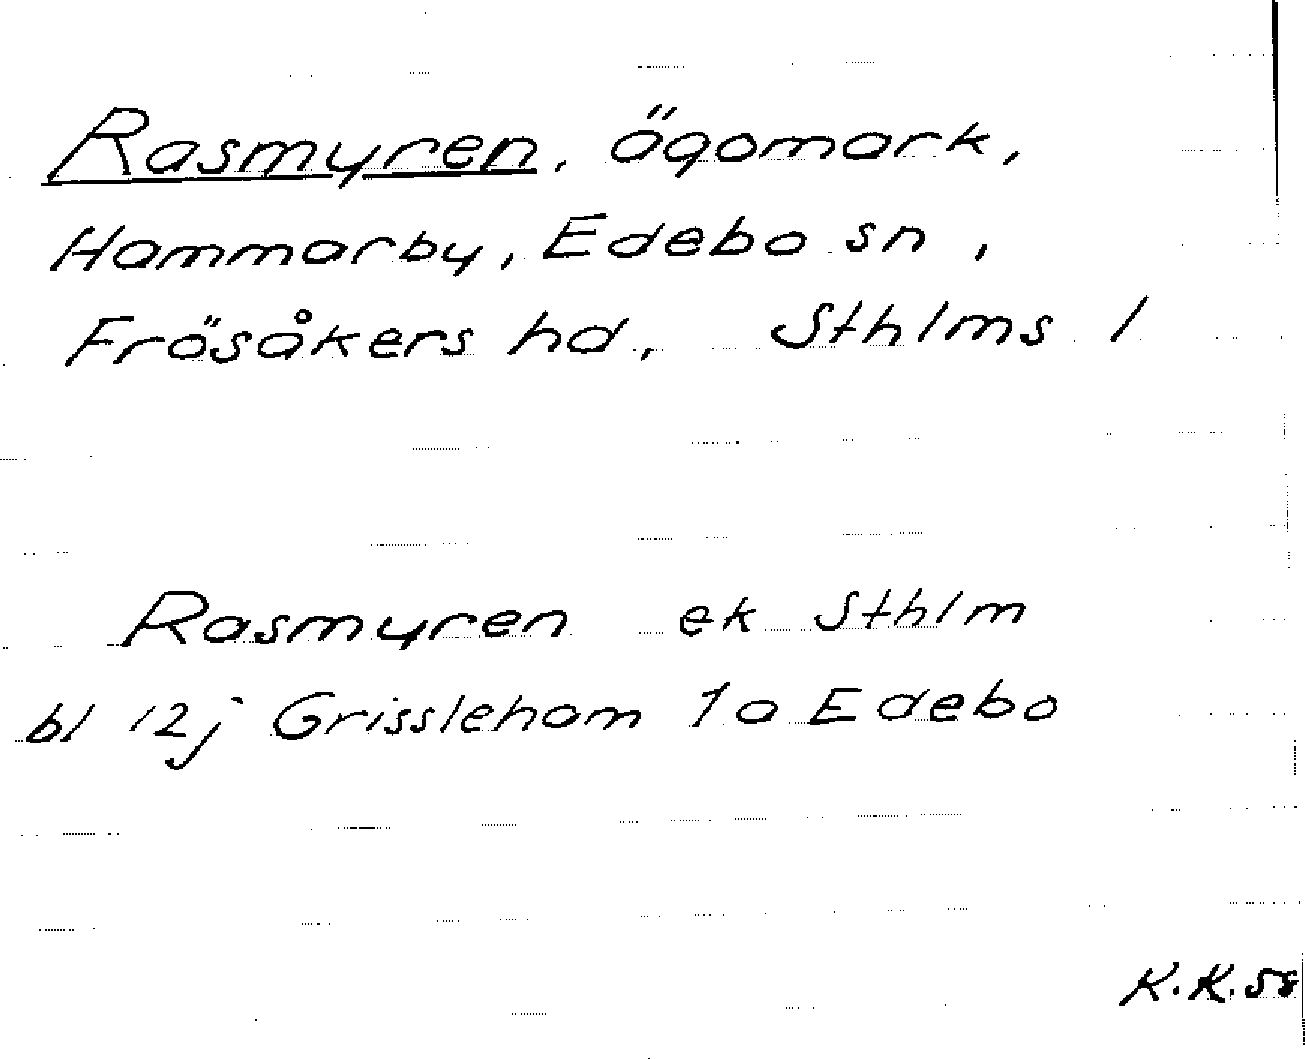 Rasmyren, ägomark,
Hammarby, Edebo sn,
Frösåkers hd, Sthlms l
Rasmyren ek Sthlm
bl 12j Grissleham 1a Edebo
K.K. 58